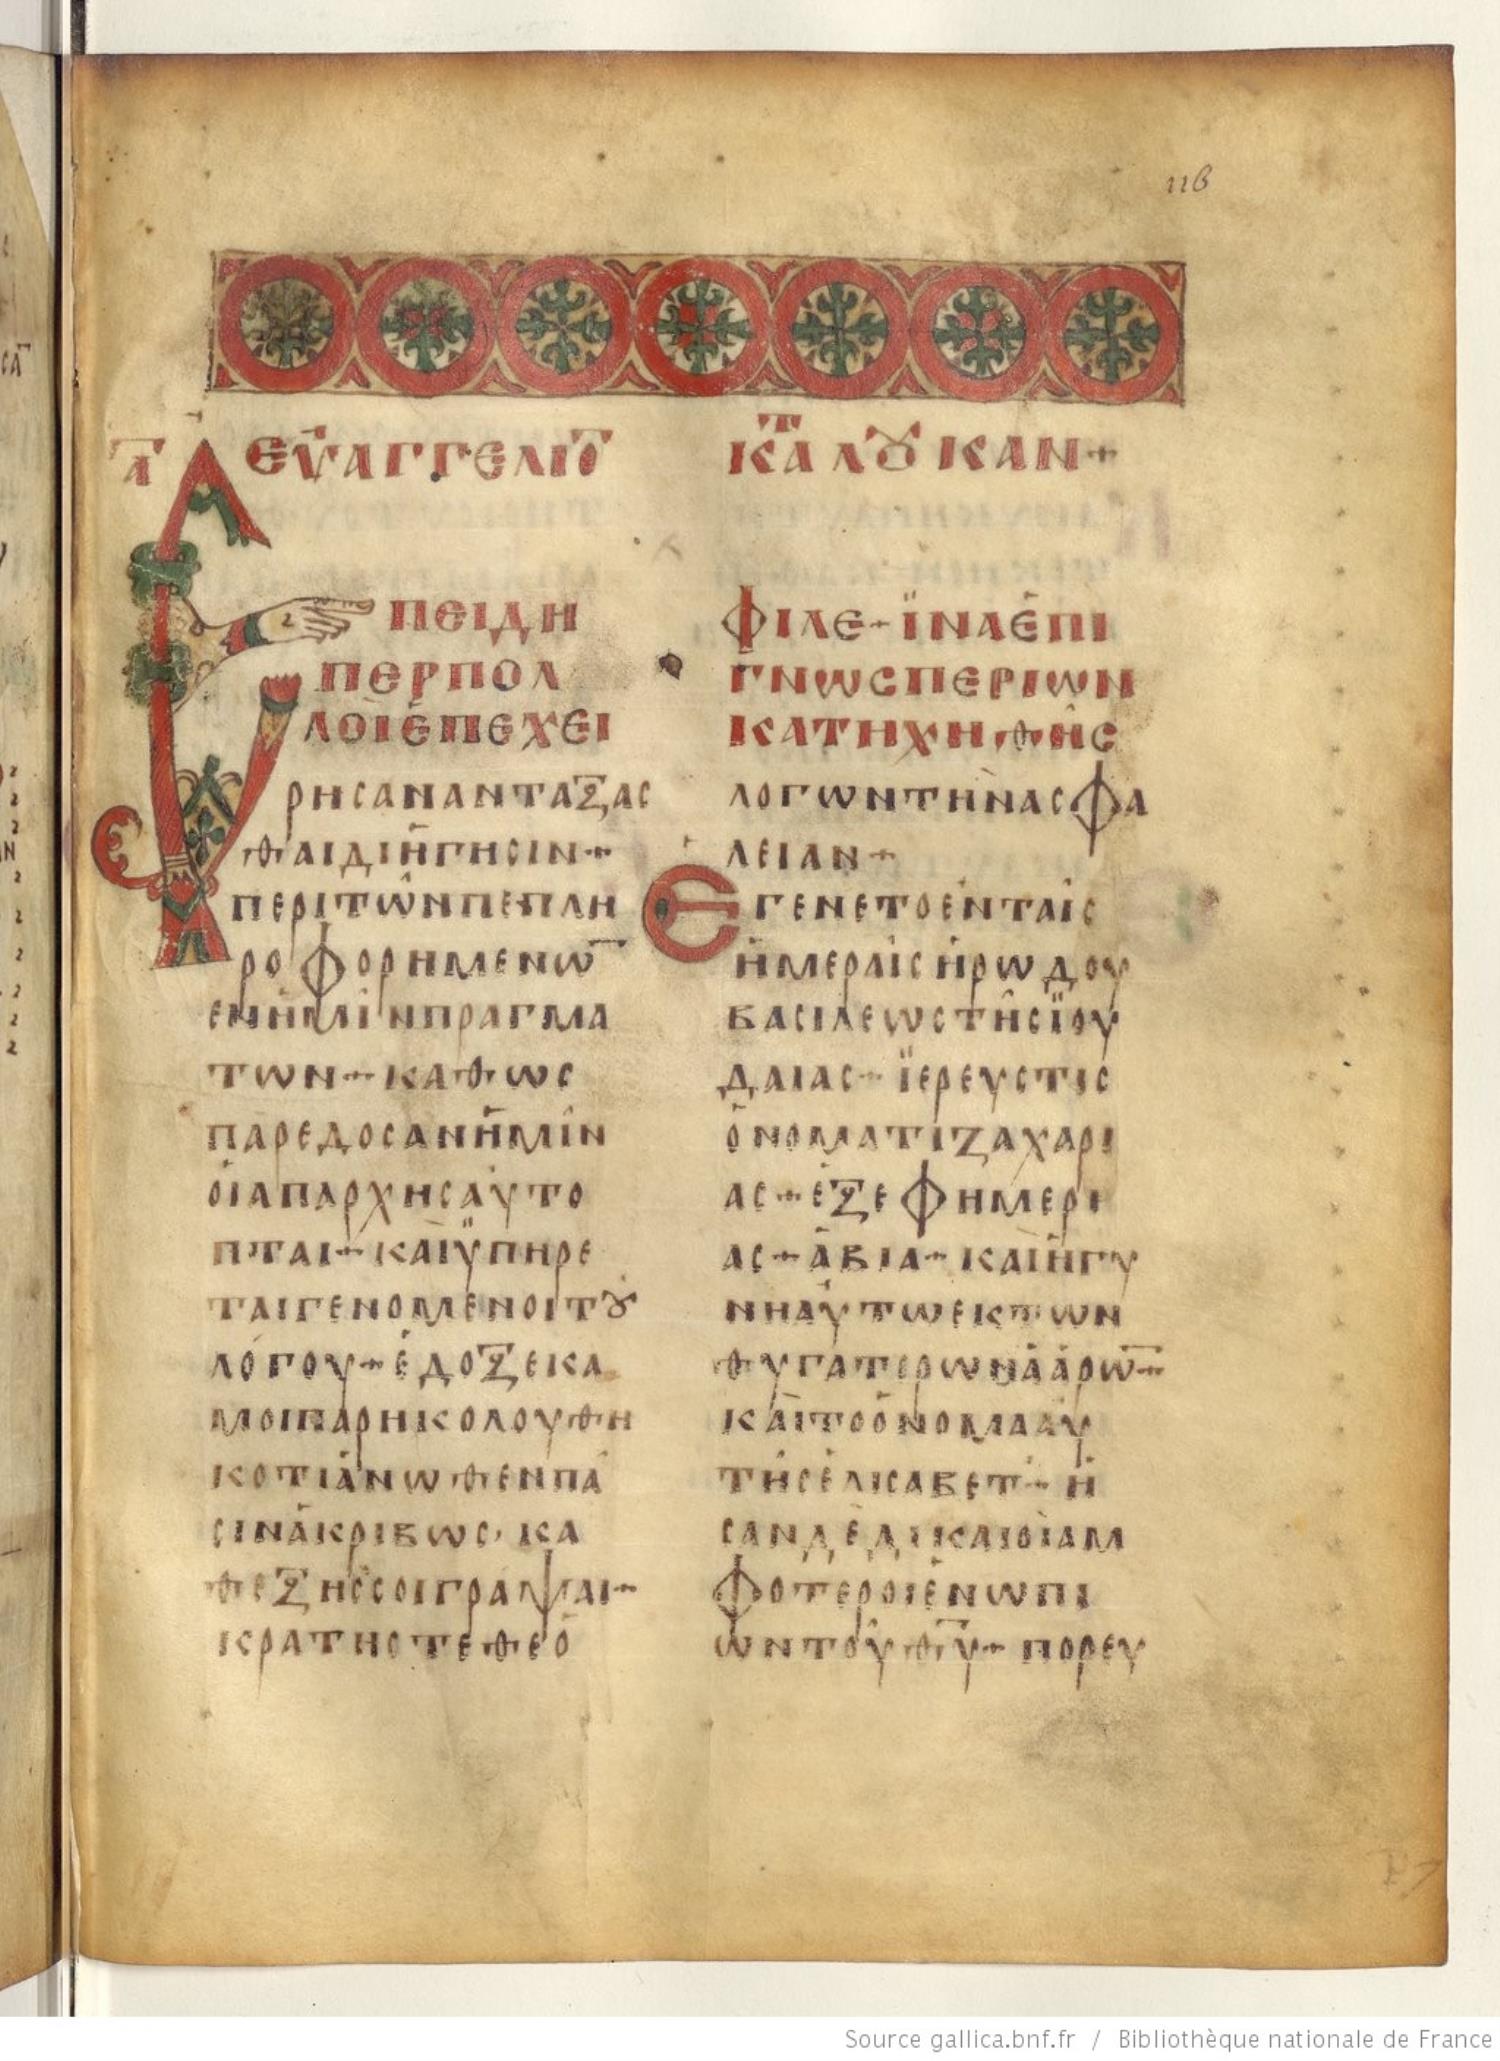 116
ΤΑ ΕΥΑΓΓΕΛΙΟΝ ΚΑΤΑ ΛΟΥΚΑΝ+
ΕΠΕΙΔΗ
ΠΕΡΠΟΛ
ΛΟΙΕΠΕΧΕΙ
ΡΗCΑΝΑΝΤΑΞΑC
ΘΑΙΔΙΗΓΗCΙΝ+
ΠΕΡΙΤΩΝΠΕΠΛΗ
ΡΟΦΟΡΗΜΕΝΩ̅
ΕΝΗΜΙΝΠΡΑΓΜΑ
ΤΩΝ+ΚΑΘΩC
ΠΑΡΕΔΟCΑΝΗΜΙΝ
ΟΙΑΠΑΡΧΗCΑΥΤΟ
ΠΤΑΙ+ΚΑΙΫΠΗΡΕ
ΤΑΙΓΕΝΟΜΕΝΟΙΤȢ
ΛΟΓΟΥ+ΕΔΟΞΕΚΑ
ΜΟΙΠΑΡΗΚΟΛΟΥΘΗ
ΚΟΤΙΑΝΩΘΕΝΠΑ
CΙΝΑΚΡΙΒΩC·ΚΑ
ΘΕΞΗCCΟΙΓΡΑΨΑΙ+
ΚΡΑΤΗCΤΕΘΕΟ
ΦΙΛΕ+ΪΝΑΕΠΙ
ΓΝΩCΠΕΡΙΩΝ
ΚΑΤΗΧΗΘΗC
ΛΟΓΩΝΤΗΝΑCΦΑ
ΛΕΙΑΝ+
ΕΓΕΝΕΤΟΕΝΤΑΙC
ΗΜΕΡΑΙCΗΡΩΔΟΥ
ΒΑCΙΛΕΩCΤΗCΪΟΥ
ΔΑΙΑC+ΪΕΡΕΥCΤΙC
ΟΝΟΜΑΤΙΖΑΧΑΡΙ
ΑC+ΕΞΕΦΗΜΕΡΙ
ΑC+ΑΒΙΑ+ΚΑΙΗΓΥ
ΝΗΑΥΤΩΕΚΤΩΝ
ΘΥΓΑΤΕΡΩΝΑΑΡΩ̅+
ΚΑΙΤΟΟΝΟΜΑΑΥ
ΤΗCΕΛΙCΑΒΕΤ+Η
CΑΝΔΕΔΙΚΑΙΟΙΑΜ
ΦΟΤΕΡΟΙΕΝΩΠΙ
ΩΝΤΟΥΘ̅Υ̅+ΠΟΡΕΥ
Source gallica.bnf.fr / Bibliothèque nationale de France